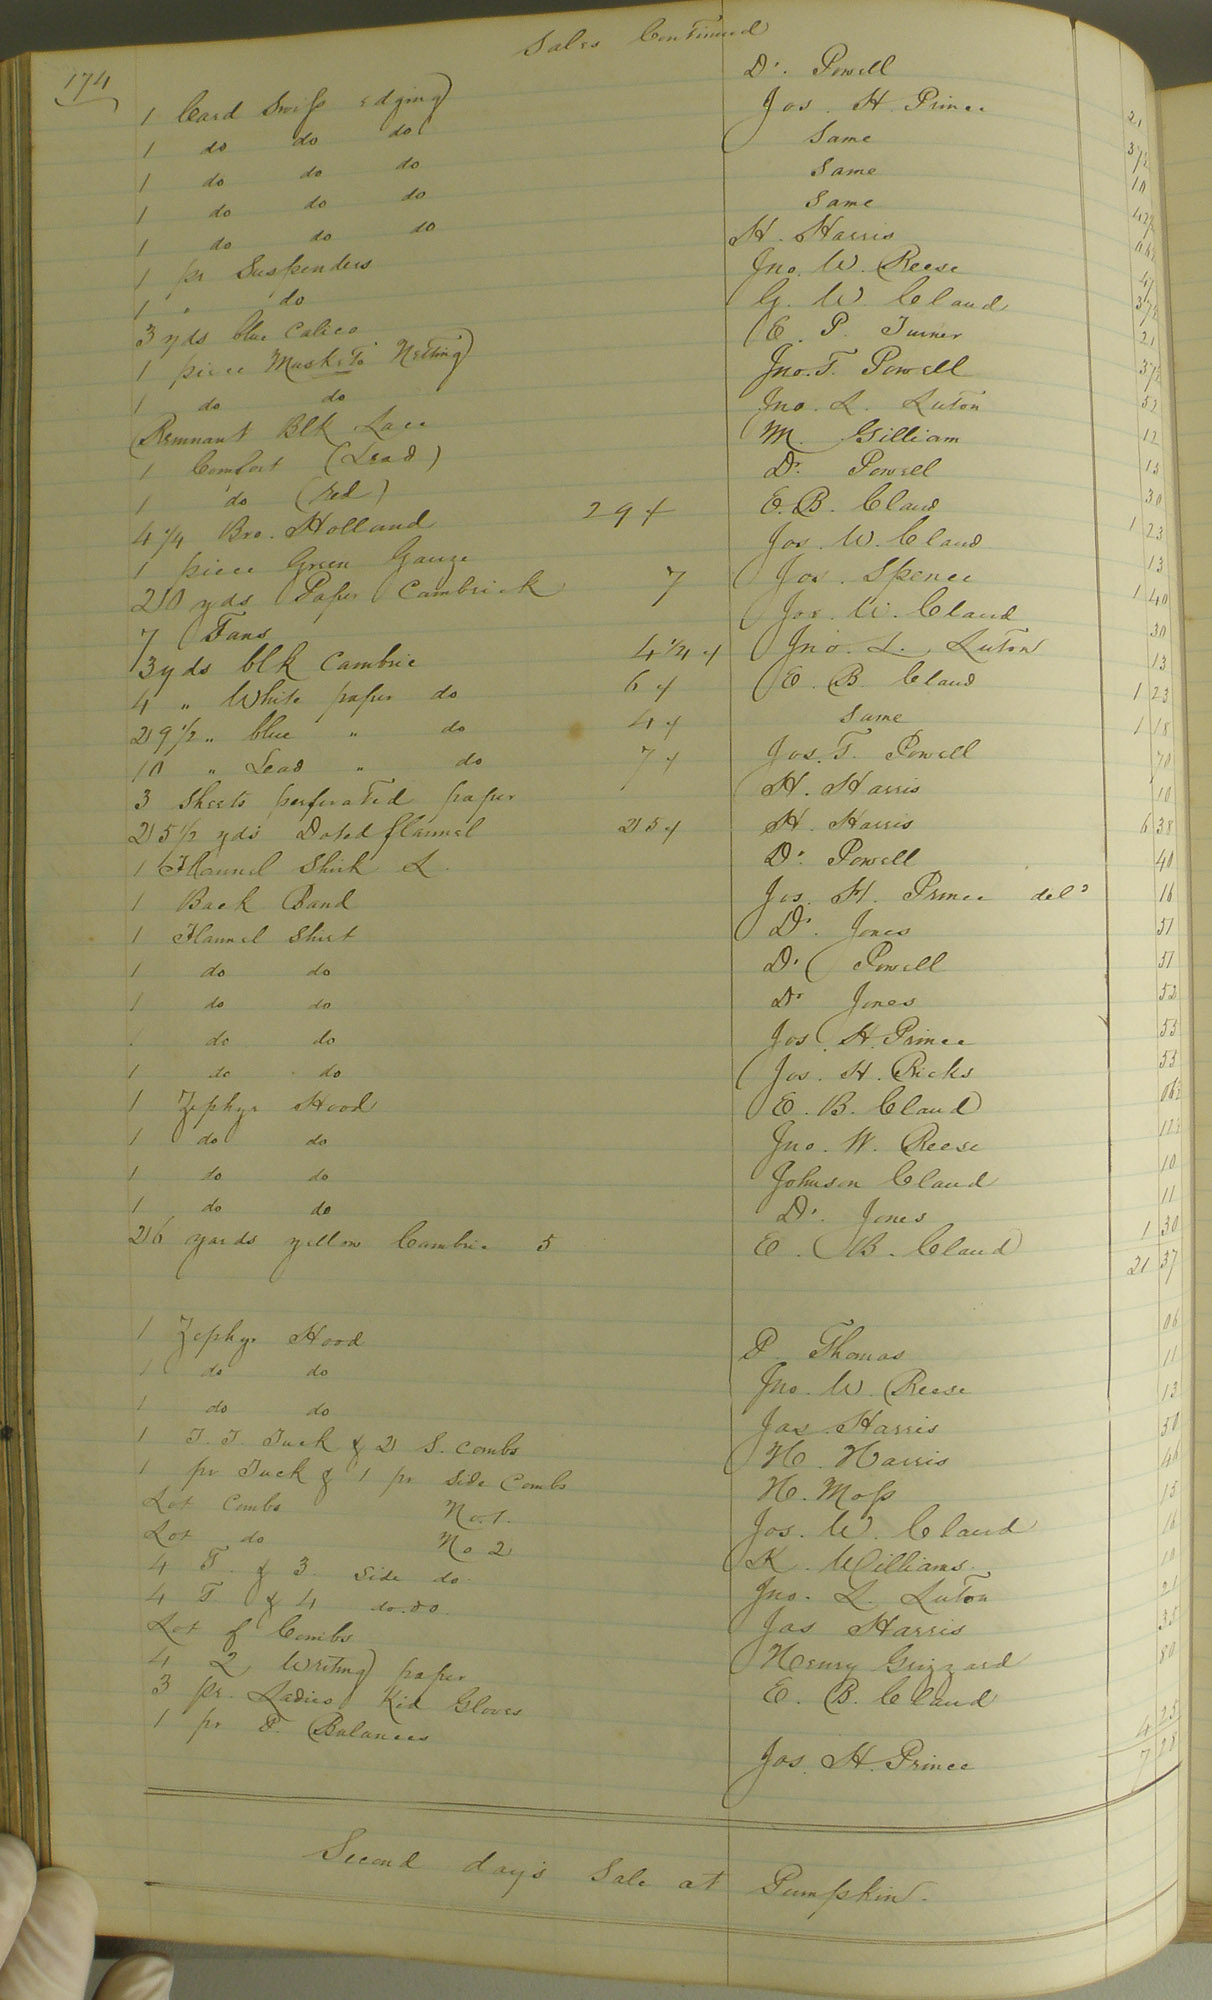 Sales Continued
174
1 Card Swiss Edging Dr. Powell
1 do do do Jos. H. Prince 21
1 do do do Same 37½
1 do do do Same 10
1 do do do Same 42½
1 pr Suspenders H. Harris 06½
1 " do Jno. W. Reese
3 yds blue Calico G. W. Claud 37½
1 piece Musketo Netting E. P. Turner 21
1 do do Jno. T. Powell 37½
Remnant Blk Lace Jno. L. Luton 52
1 Comfort (Lead) M. Gilliam 12
1 do (red) Dr. Powell 15
4 ¼ Bro. Holland 29 E. B. Claud 30
1 piece Green Gauze Jos. W. Claud 1 23
20 yds Paper Cambrick 7 Jos. Spence 13
7 Fans Jos. W. Claud 1 40
3 yds blk Cambric 4¼ Jno. L. Luton 30
4 " White paper do 6 E. B. Claud 13
29½ " blue " do 4 Same 1 23
10 " Lead " do 7 Jos. T. Powell 1 18
3 Sheets perforated paper H. Harris 70
25½ yds Doted flannel 25 H. Harris 10
1 Flannel Shirk L. Dr. Powell 6 38
1 Back Band Jos. H. Prince deld 40
1 Flannel Shirt Dr. Jones 16
1 do do Dr. Powell 51
1 do do Dr Jones 51
1 do do Jos H. Prince 52
1 do do Jos. H. Ricks 55
1 Zephyr Hood E. B. Claud 55
1 do do Jno. W. Reese 06½
1 do do Johnson Claud 12½
1 do do Dr. Jones 10
26 yards yellow Cambric 5 E. B. Claud 11
1 30
21 37
1 Zephyr Hood P. Thomas 06
1 do do Jno. W. Reese 11
1 do do Jas Harris 13
1 T. T. Tuck & 2 S. combs H. Harris 50
1 pr Tuck & 1 pr Side Combs H. Moss 46
Lot Combs No. 1. Jos. W. Claud 15
Lot do No 2 K. Williams 16
4 T. & 3 Side do. Jno. L. Luton 10
4 T. & 4 do. do. Jas Harris 21
Lot of Combs Henry Grizzard 35
4 2 Writing paper E. B. Claud 80
3 pr. Ladies Kid Gloves
1 pr P. Balances Jos. H. Prince 4 25
7 28
Second day's Sale at Pumpkin.